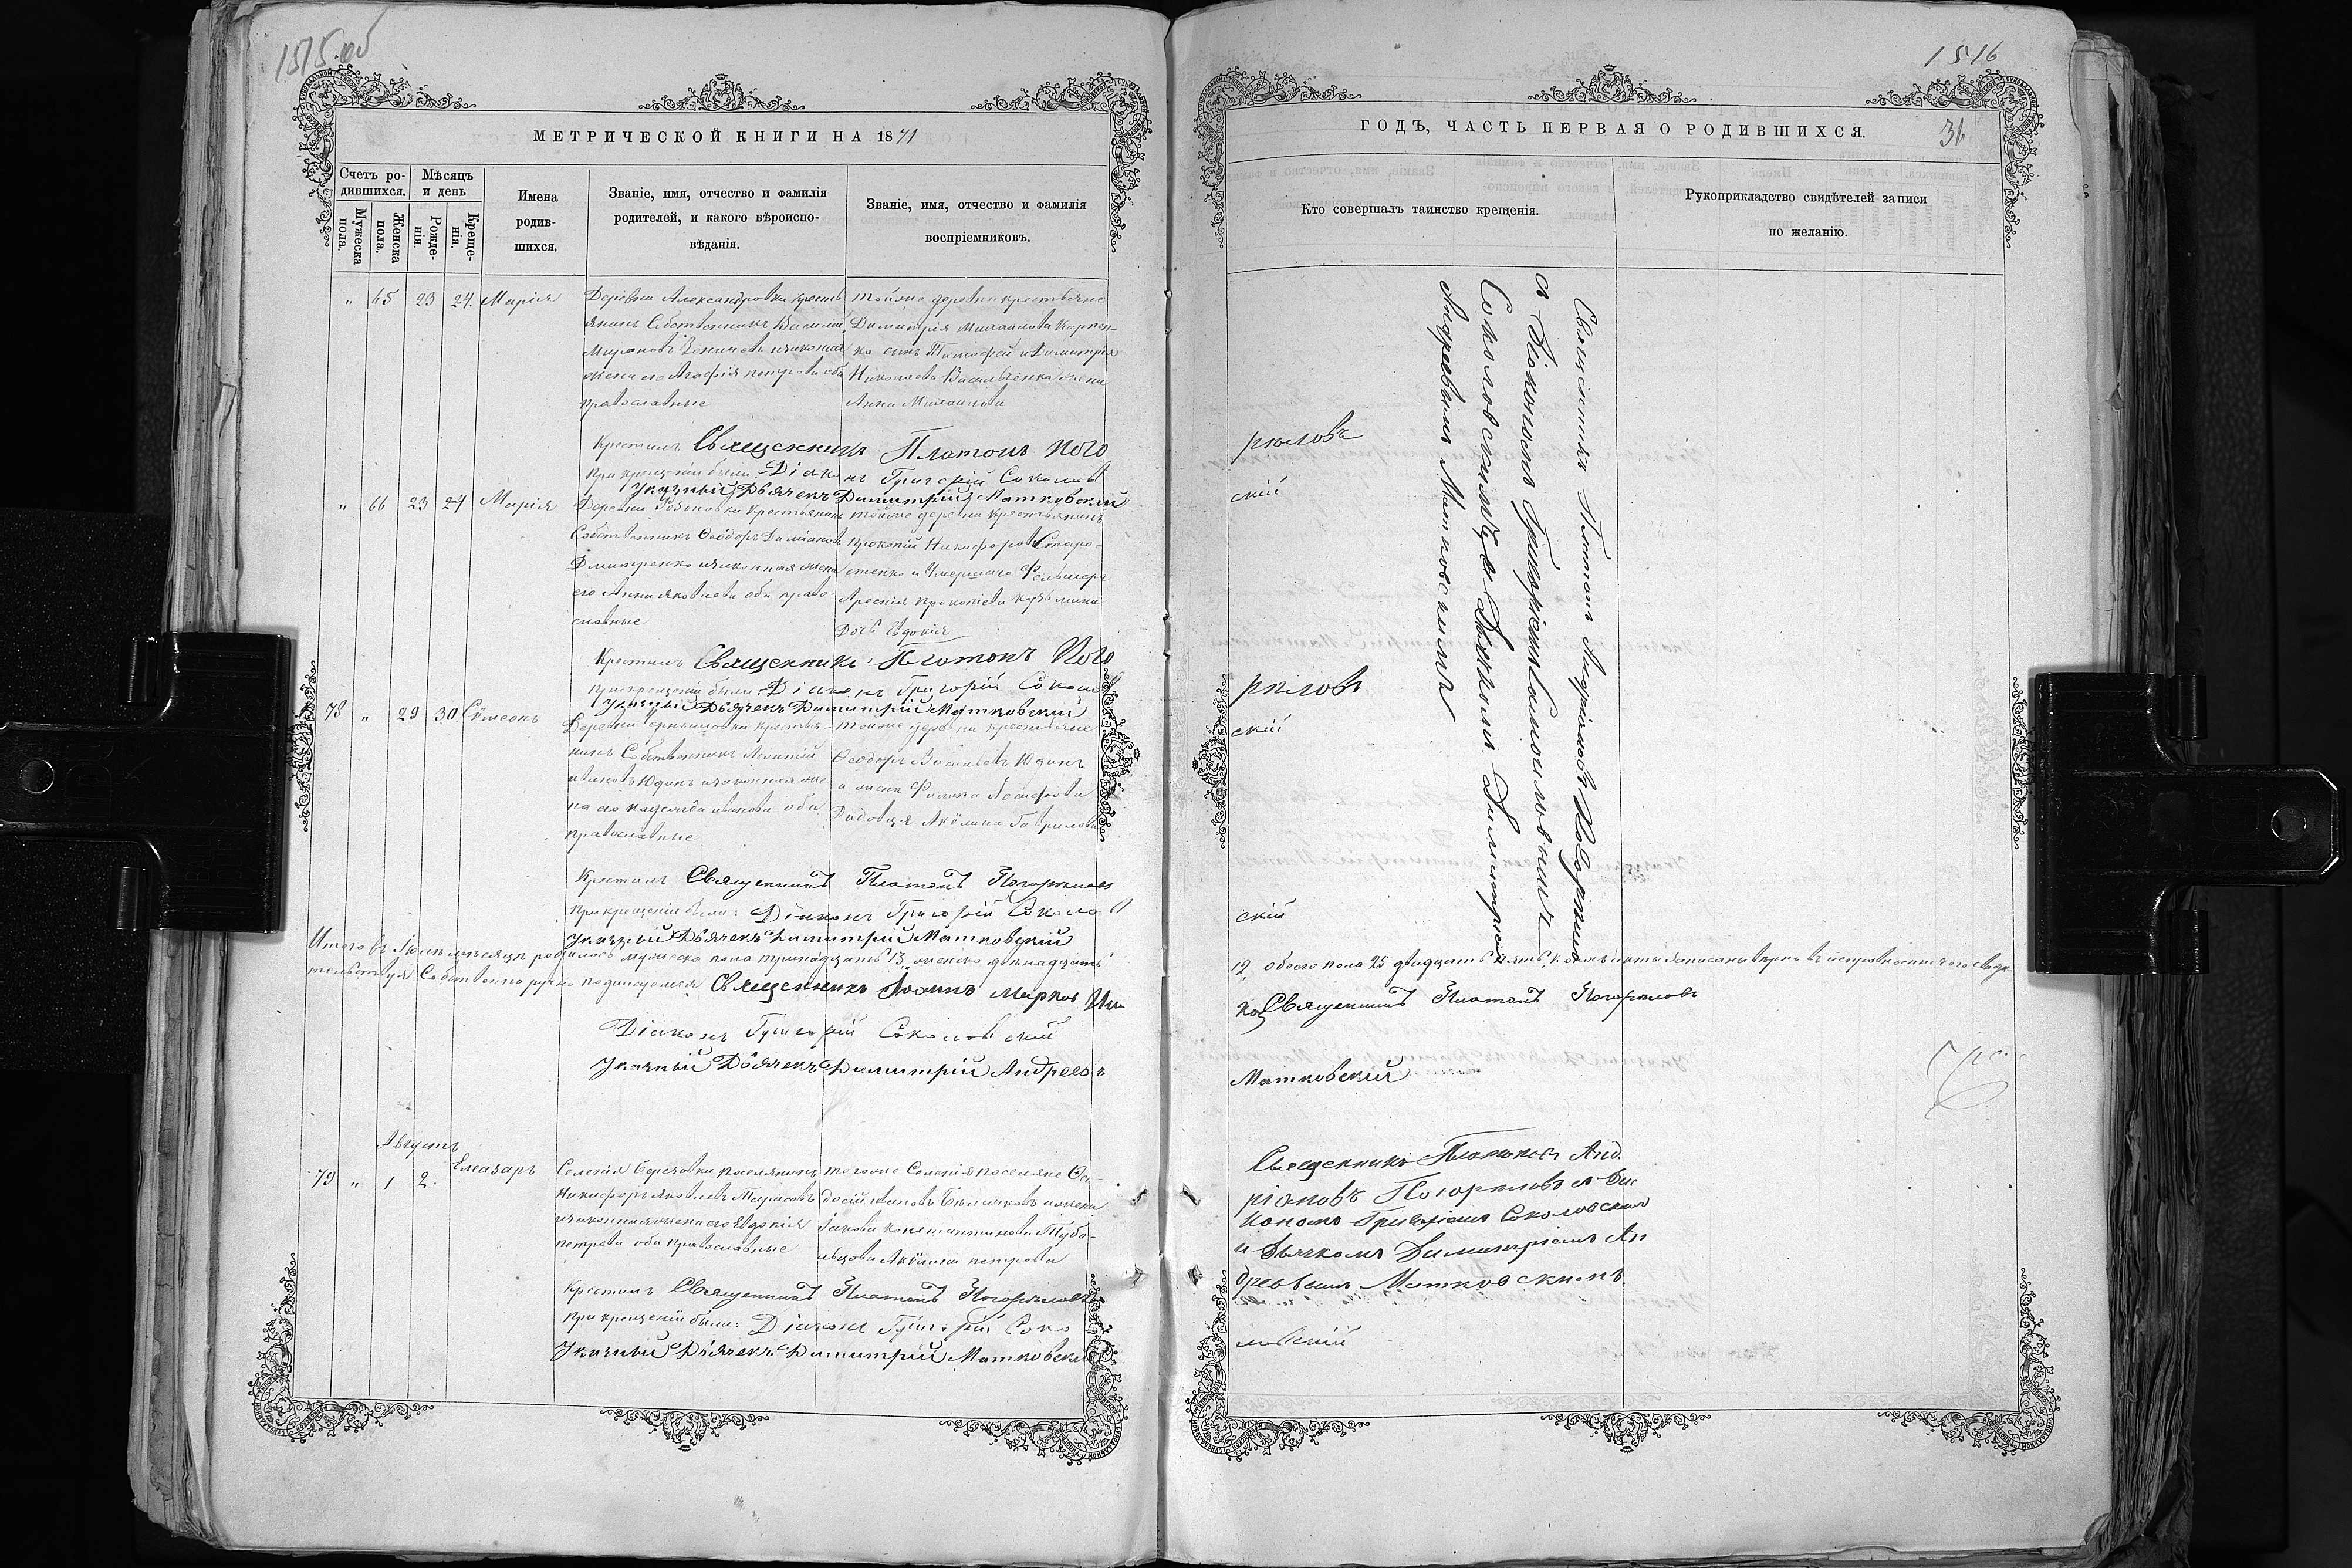 1515 об
МЕТРИЧЕСКОЙ КНИГИ НА 1871
Счетъ ро-
дившихся.
Мѣсяцъ
и день
Мужеска
пола.
Женска
пола.
Рожде-
нія.
Креще-
нія.
Имена
родив-
шихся.
Званіе, имя, отчество и фамилія
родителей, и какого вѣроиспо-
вѣданія.
Званіе, имя, отчество и фамилія
воспріемниковъ.
" 65 23 24. Марія
Деревни Александровки кресть
янинъ Собственникъ Василій
законная
жена его Агафія Петрова оба
православные
тойже деревни крестьяне
Димитрія Михаилова
сынъ Тимофей и Димитрія
Николаева Васильченка жена
Анна Михаилова
Крестилъ Священникъ Платонъ Пого
При крещеніи были: Діаконъ Григорій Соколов
Указный Дьячекъ Димитрій Матковскій
" 66 23 24 Марія
Деревни крестьянинъ
Собственникъ Ѳеодоръ Даміановъ
Дмитренко и законная жена
его Анна Яковлева оба право-
славные
тойже деревни крестьянинъ
Прокопій Никифоровъ Старо-
стенко и Умершаго Фельшера
Арсенія Прокопіева
Дочь Евдокія
Крестилъ Священникъ Платонъ Пого
при крещеніи были: Діаконъ Григорій Соколов
Указный Дьячекъ Димитрій Матковскій
78 " 29 30 Сѵмеонъ
Деревни Чернышовки крестья-
нинъ Собственникъ Леонтій
Ивановъ Юдинъ и законная же-
на его Иванова оба
православные
тойже деревни крестьяне
Ѳеодоръ Юдинъ
и жена Іосифова
Акѵлина Гаврилова
Крестилъ Священникъ Платонъ Погорѣлов
При крещеніи были: Діаконъ Григорій Соколов
Указный Дьячекъ Димитрій Матковскій
Итого въ Іюлѣ мѣсяцѣ родилось мужеска пола тринадцать 13, женска двѣнадцать
тельствуя Собственноручно подписуемся Священникъ Іоаннъ Марков
Діаконъ Григорій Соколовскій
Указный Дьячекъ Димитрій Андреевъ
Августъ
79 " 1 2. Елеазаръ
Селенія Березовки поселянинъ
Никифоръ Яковлевъ Тарасовъ
и законная жена его Евдокія
Петрова оба православные
тогоже Селенія поселяне Ѳео-
досій Ивановъ и жена
Іакова Константинова
Акѵлина Петрова
Крестилъ Священникъ Платонъ Погорѣловъ
При крещеніи были: Діаконъ Григорій Соко
Указный Дьячекъ Димитрій Матковскій
1516
ГОДЪ, ЧАСТЬ ПЕРВАЯ О РОДИВШИХСЯ.
31
Кто совершалъ таинство крещенія.
Рукоприкладство свидѣтелей записи
по желанію.
Священникъ Платонъ Андріановъ Погорѣлов
съ Діакономъ Григоріемъ Самоиловичемъ
Соколовскимъ, и Дьячкомъ Димитріемъ
Андреевымъ Матковскимъ
рѣловъ
скій
рѣловъ
скій
скій
12, обоего пола 25 двадцать пять,
Священникъ Платонъ Погорѣловъ
Матковскій
Священникъ Платонъ Анд
ріановъ Погорѣловъ съ Діа
кономъ Григоріемъ Соколовским
и Дьячкомъ Димитріемъ Ан
дреевымъ Матковскимъ.
ловскій